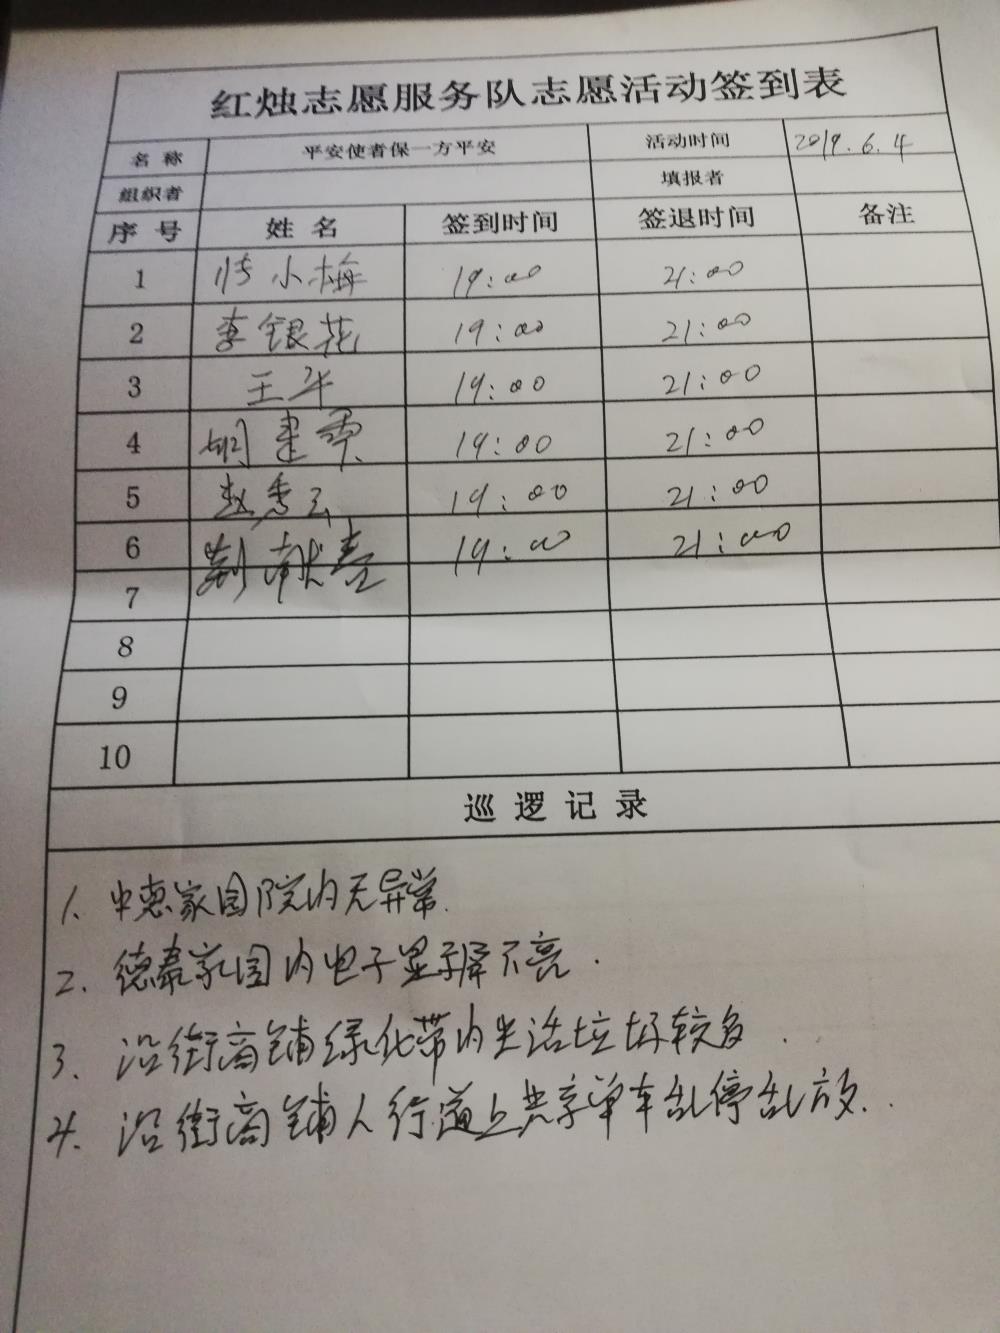 红烛志愿服务队志愿活动签到表
名称 平安使者保一方平安 活动时间 2019.6.4
组织者 填报者
序号 姓名 签到时间 签退时间 备注
1 小梅 19:00 21:00
2 李银花 19:00 21:00
3 王 19:00 21:00
4 胡建 19:00 21:00
5 赵秀云 19:00 21:00
6 19:00 21:00
7
8
9
10
巡逻记录
1. 中惠家园院内无异常.
2. 德泰家园内电子显示屏不亮.
3. 沿街商铺绿化带内生活垃圾较多.
4. 沿街商铺人行道上共享单车乱停乱放..